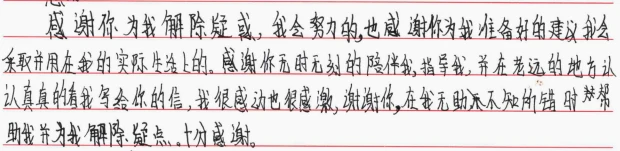 感谢你为我解除疑惑，我会努力的，也感谢你为我准备好的建议我会
采取并用在我的实际生活上的。感谢你无时无刻的陪伴我，指导我，并在老远的地方认
认真真的看我写给你的信，我很感动也很感激，谢谢你，在我无助而不知所错时帮
助我并为我解除疑点。十分感谢。